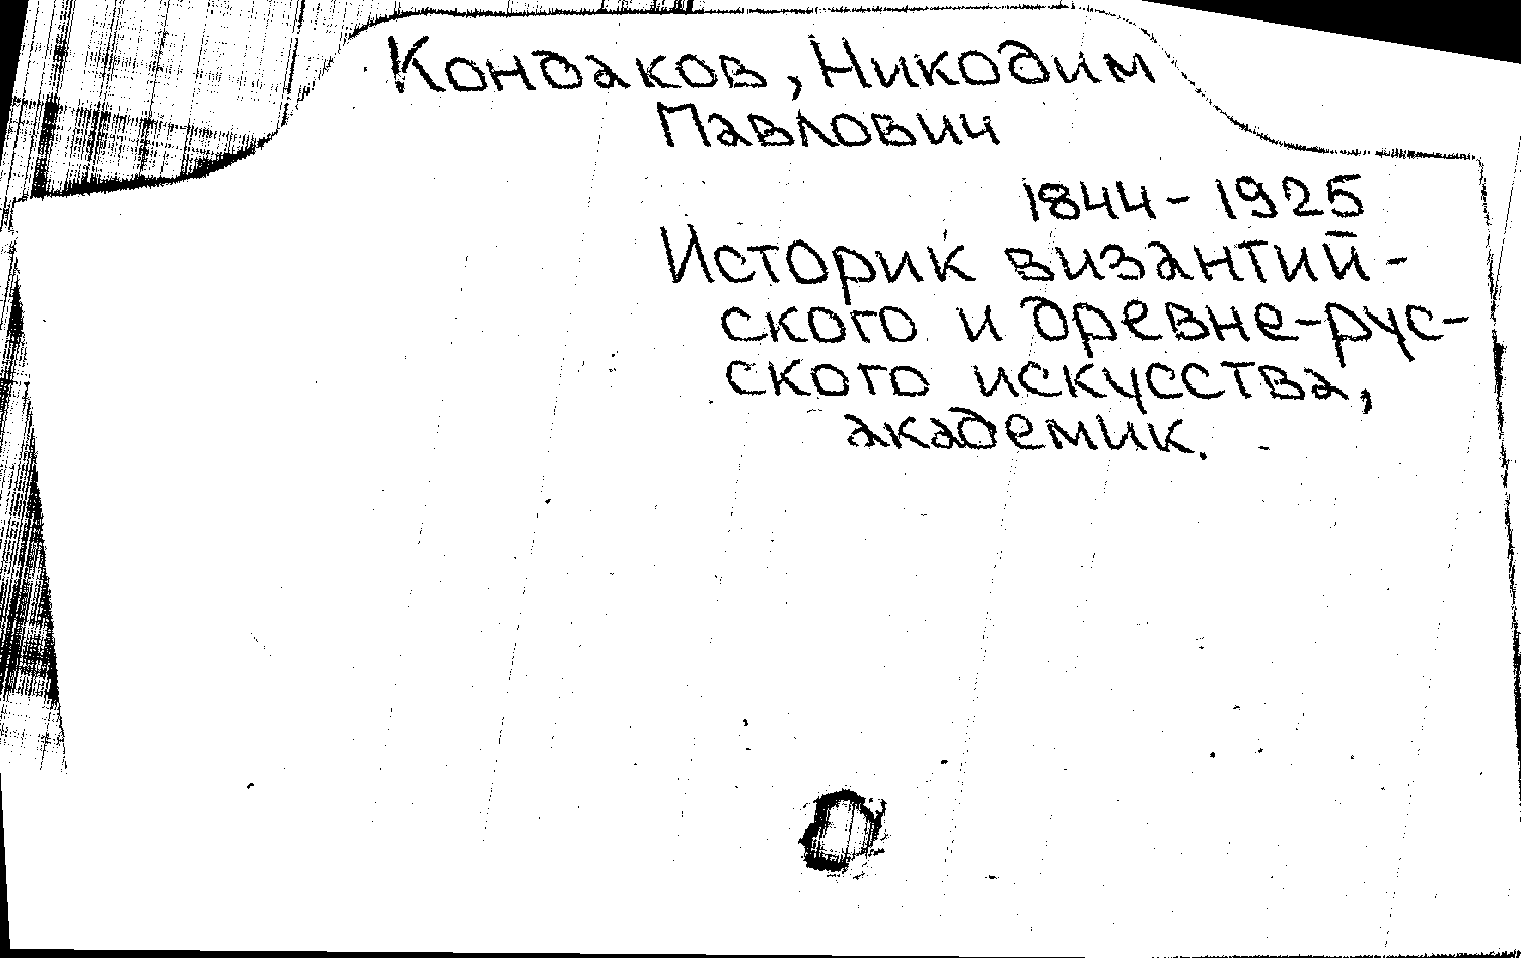 Кондаков, Никодим
Павлович
1844 - 1925
Историк византий-
ского и древне-рус-
ского искусства,
академик.